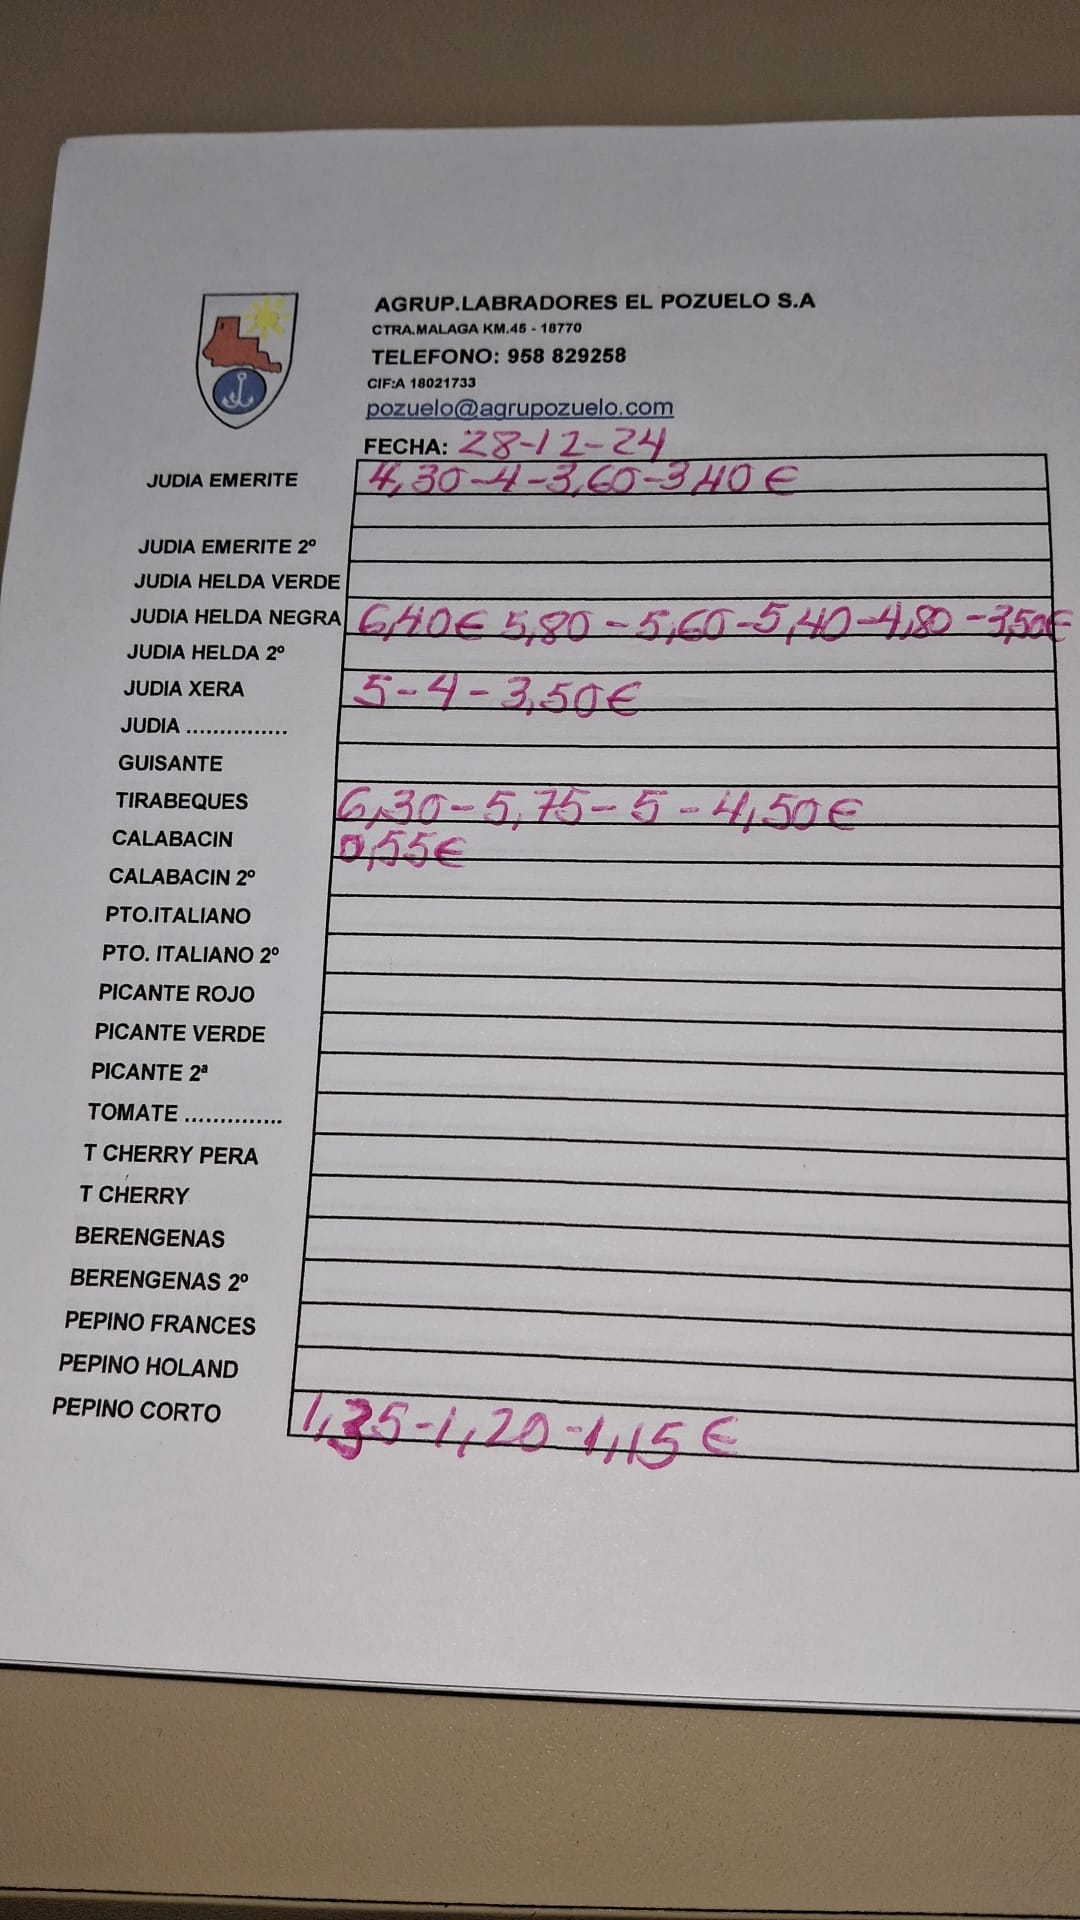 AGRUP.LABRADORES EL POZUELO S.A
CTRA.MALAGA KM.45 - 18770
TELEFONO: 958 829258
CIF:A 18021733
pozuelo@agrupozuelo.com
FECHA: 28-12-24
JUDIA EMERITE 4,30-4-3,60-3,40€
JUDIA EMERITE 2º
JUDIA HELDA VERDE
JUDIA HELDA NEGRA 6,40€ 5,80-5,60-5,40-4,80-3,50€
JUDIA HELDA 2º
JUDIA XERA 5-4-3,50€
JUDIA ...............
GUISANTE
TIRABEQUES 6,30-5,75-5-4,50€
CALABACIN 0,55€
CALABACIN 2º
PTO.ITALIANO
PTO. ITALIANO 2º
PICANTE ROJO
PICANTE VERDE
PICANTE 2ª
TOMATE ..............
T CHERRY PERA
T CHERRY
BERENGENAS
BERENGENAS 2º
PEPINO FRANCES
PEPINO HOLAND
PEPINO CORTO 1,35-1,20-1,15€